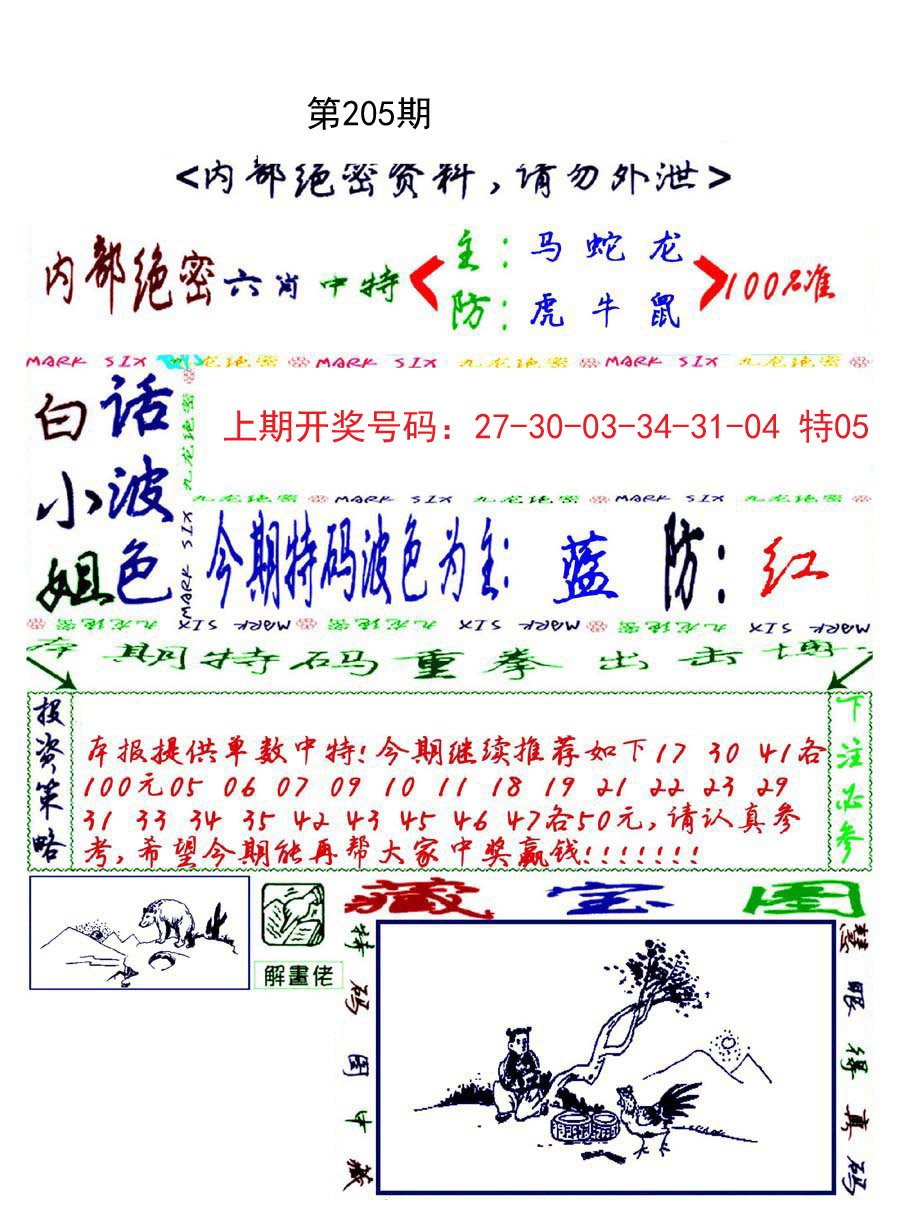 第205期
<内部绝密资料,请勿外泄>
内部绝密六肖中特
主:马 蛇 龙
防:虎 牛 鼠
100%准
MARK SIX 九龙绝密 MARK SIX 九龙绝密 MARK SIX 九龙绝密
白小姐
话波色
九龙绝密
MARK SIX
上期开奖号码：27-30-03-34-31-04 特05
九龙绝密 MARK SIX 九龙绝密 MARK SIX 九龙绝密
今期特码波色为主: 蓝 防: 红
九龙绝密 MARK SIX 九龙绝密 MARK SIX 九龙绝密 MARK SIX
本期特码重拳出击博
投资策略
本报提供单数中特!今期继续推荐如下17 30 41各
100元05 06 07 09 10 11 18 19 21 22 23 29
31 33 34 35 42 43 45 46 47各50元,请认真参
考,希望今期能再帮大家中奖赢钱!!!!!!!
下注必参
解畫佬
藏宝图
特码图中藏
慧眼得真码